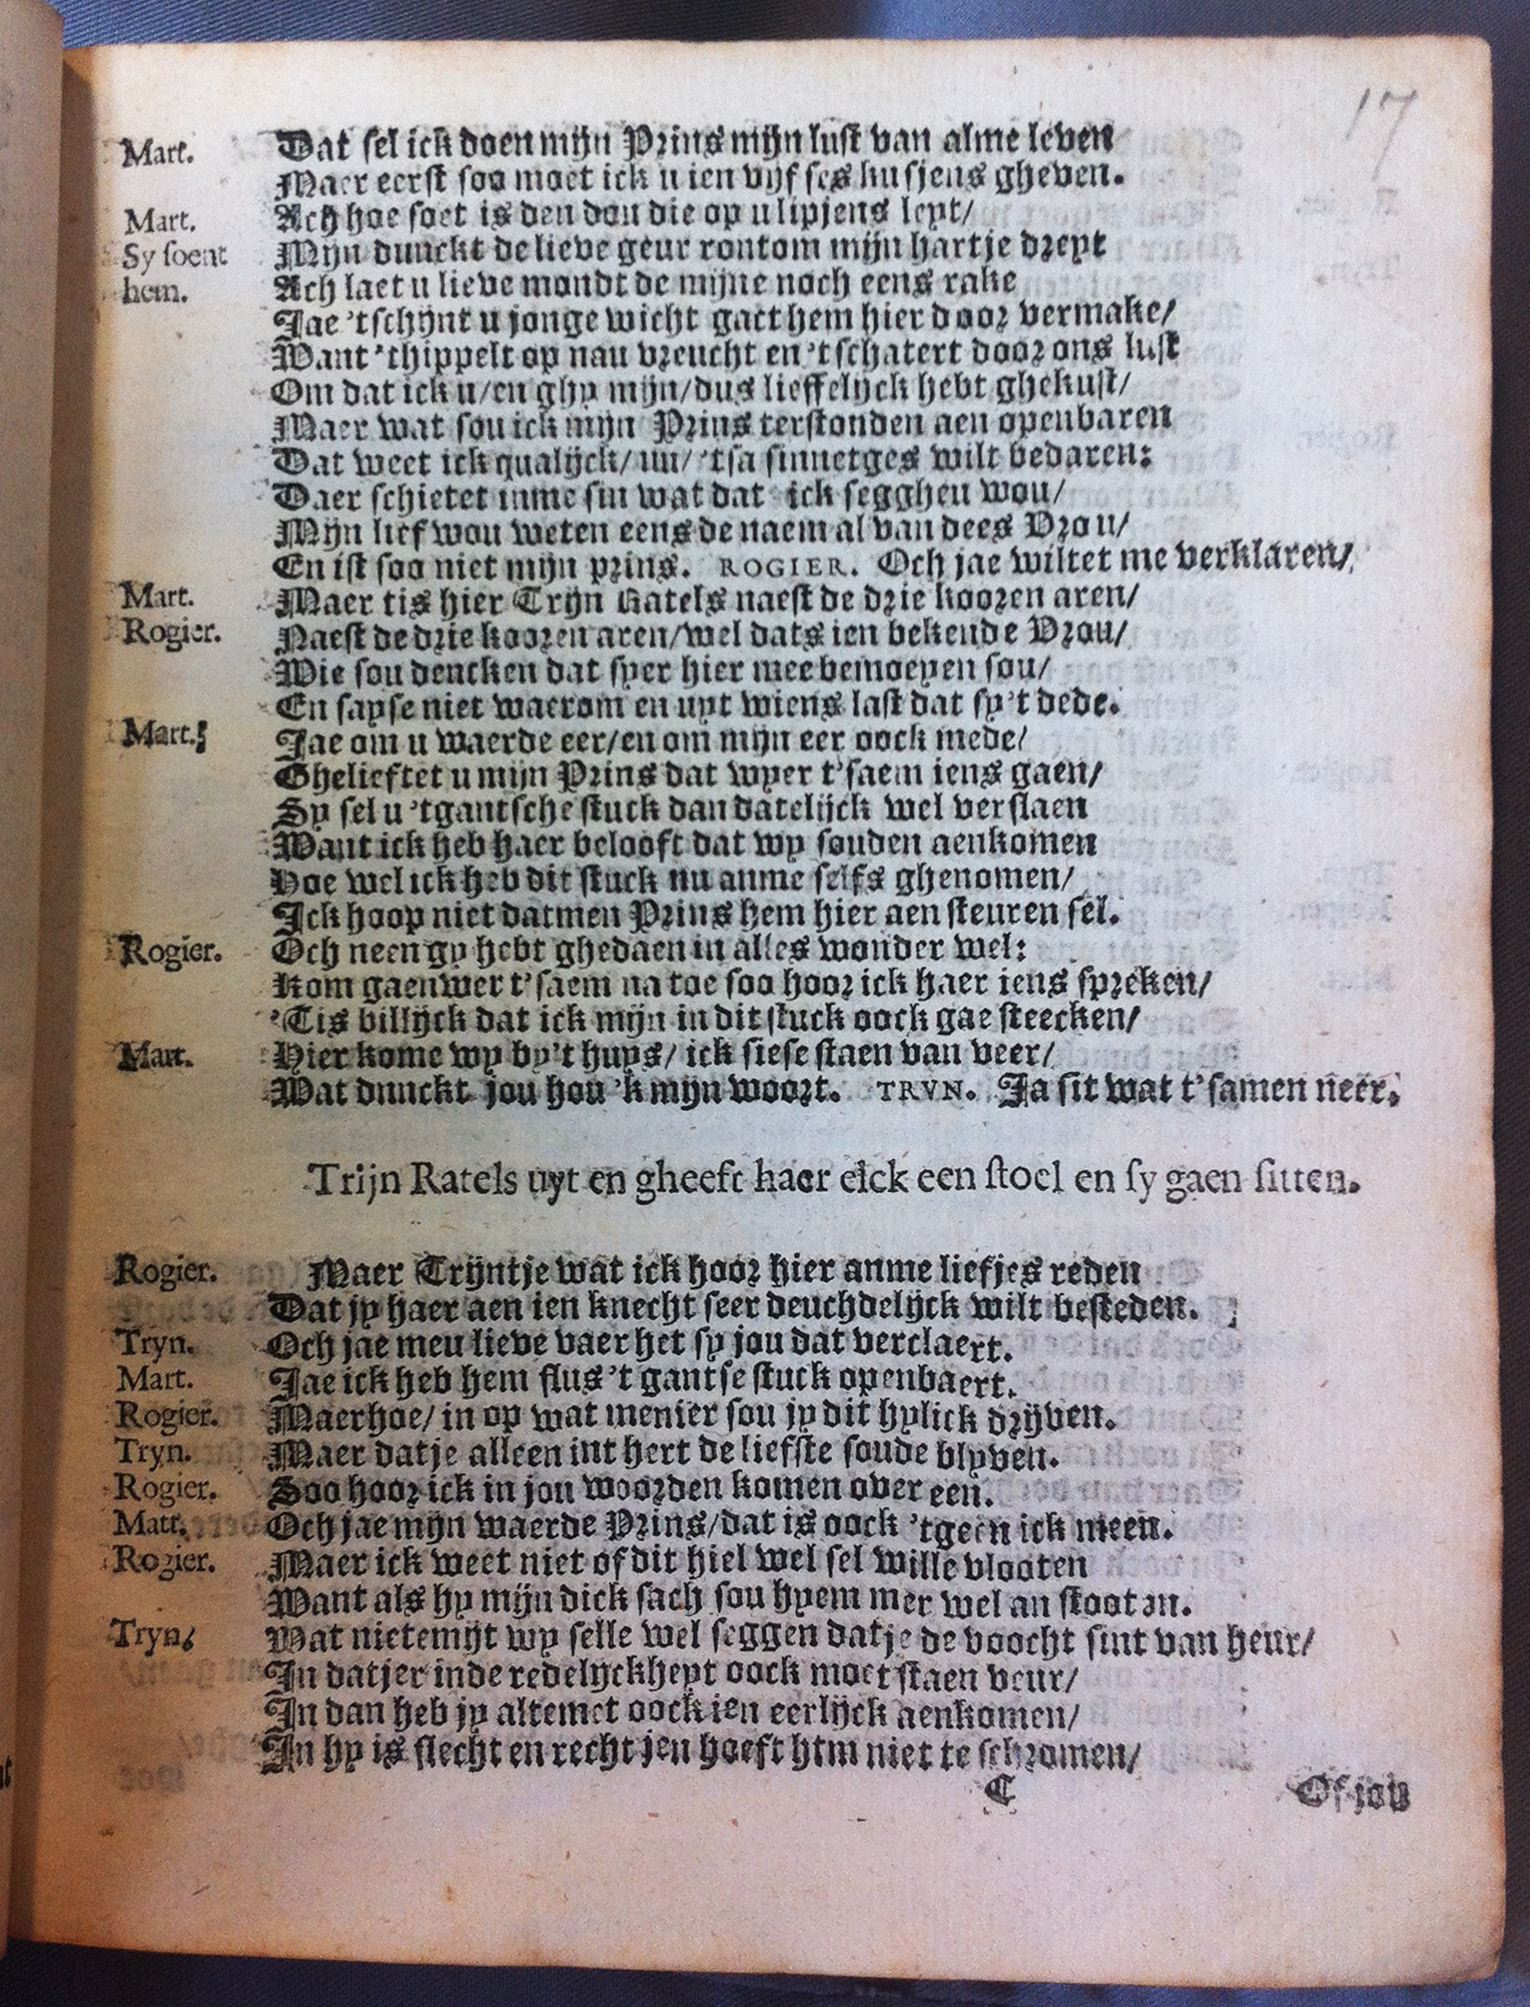 17
Mart. Dat sel ick doen mijn Prins mijn lust van alme leven
Maer eerst soo moet ick u ien vijf ses kusjens gheven.
Mart. Ach hoe soet is den dou die op u lipjens leyt/
Sy soent Mijn dunckt de lieve geur rontom mijn hartje dreyt
hem. Ach laet u lieve mondt de mijne noch eens rake
Jae 'tschijnt u jonge wicht gaet hem hier door vermake/
Want 'thippelt op nau vreucht en 'tschatert door ons lust
Om dat ick u/en ghy mijn/dus lieffelijck hebt ghekust/
Maer wat sou ick mijn Prins terstonden aen openbaren
Dat weet ick qualijck/nu/'tsa sinnetges wilt bedaren:
Daer schietet inme sin wat dat ick segghen wou/
Mijn lief wou weten eens de naem al van dees Vrou/
En ist soo niet mijn prins. ROGIER. Och jae wiltet me verklaren/
Mart. Maer tis hier Trijn Ratels naest de drie kooren aren/
Rogier. Naest de drie kooren aren/wel dats ien bekende Vrou/
Wie sou dencken dat syer hier mee bemoeyen sou/
En sayse niet waerom en uyt wiens last dat sy't dede.
Mart. Jae om u waerde eer/en om mijn eer oock mede/
Ghelieftet u mijn Prins dat wyer t'saem iens gaen/
Sy sel u 'tgantsche stuck dan datelijck wel verslaen
Want ick heb haer belooft dat wy souden aenkomen
Hoe wel ick heb dit stuck nu anme selfs ghenomen/
Ick hoop niet datmen Prins hem hier aen steuren sel.
Rogier. Och neen gy hebt ghedaen in alles wonder wel:
Kom gaenwer t'saem na toe soo hoor ick haer iens spreken/
'Tis billijck dat ick mijn in dit stuck oock gae steecken/
Mart. Hier kome wy by't huys/ ick siese staen van veer/
Wat dunckt jou hou 'k mijn woort. TRYN. Ja sit wat t'samen neer.
Trijn Ratels uyt en gheeft haer elck een stoel en sy gaen sitten.
Rogier. Maer Trijntje wat ick hoor hier anme liefjes reden
Dat jy haer aen ien knecht seer deuchdelijck wilt besteden.
Tryn. Och jae meu lieve vaer het sy jou dat verclaert.
Mart. Jae ick heb hem flus 't gantse stuck openbaert.
Rogier. Maerhoe/ in op wat menier sou jy dit hylick drijven.
Tryn. Maer datje alleen int hert de liefste soude blyven.
Rogier. Soo hoor ick in jou woorden komen over een.
Mart. Och jae mijn waerde Prins/dat is oock 'tgeen ick meen.
Rogier. Maer ick weet niet of dit hiel wel sel wille vlooten
Want als hy mijn dick sach sou hyem mer wel an stooten.
Tryn. Wat nietemijt wy selle wel seggen datje de voocht sint van heur/
In datjer inde redelyckheyt oock moet staen veur/
In dan heb jy altemet oock ien eerlijck aenkomen/
In hy is slecht en recht jen hoeft hem niet te schromen/
C Of jou